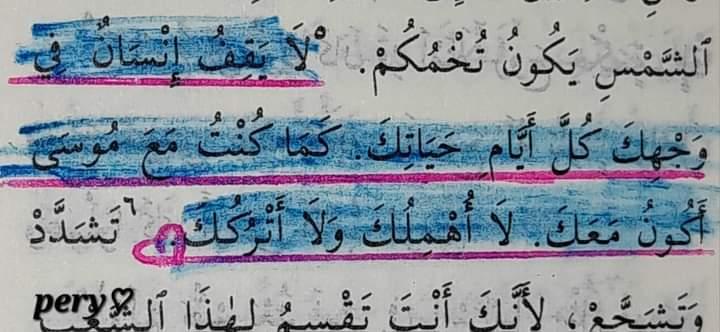 ٱلشَّمْسِ يَكُونُ تُخْمُكُمْ. ٥ لَا يَقِفُ إِنْسَانٌ فِي
وَجْهِكَ كُلَّ أَيَّامِ حَيَاتِكَ. كَمَا كُنْتُ مَعَ مُوسَى
أَكُونُ مَعَكَ. لَا أُهْمِلُكَ وَلَا أَتْرُكُكَ. ٦ تَشَدَّدْ
وَتَشَجَّعْ، لِأَنَّكَ أَنْتَ تَقْسِمُ لِهٰذَا ٱلشَّعْبِ
pery♡